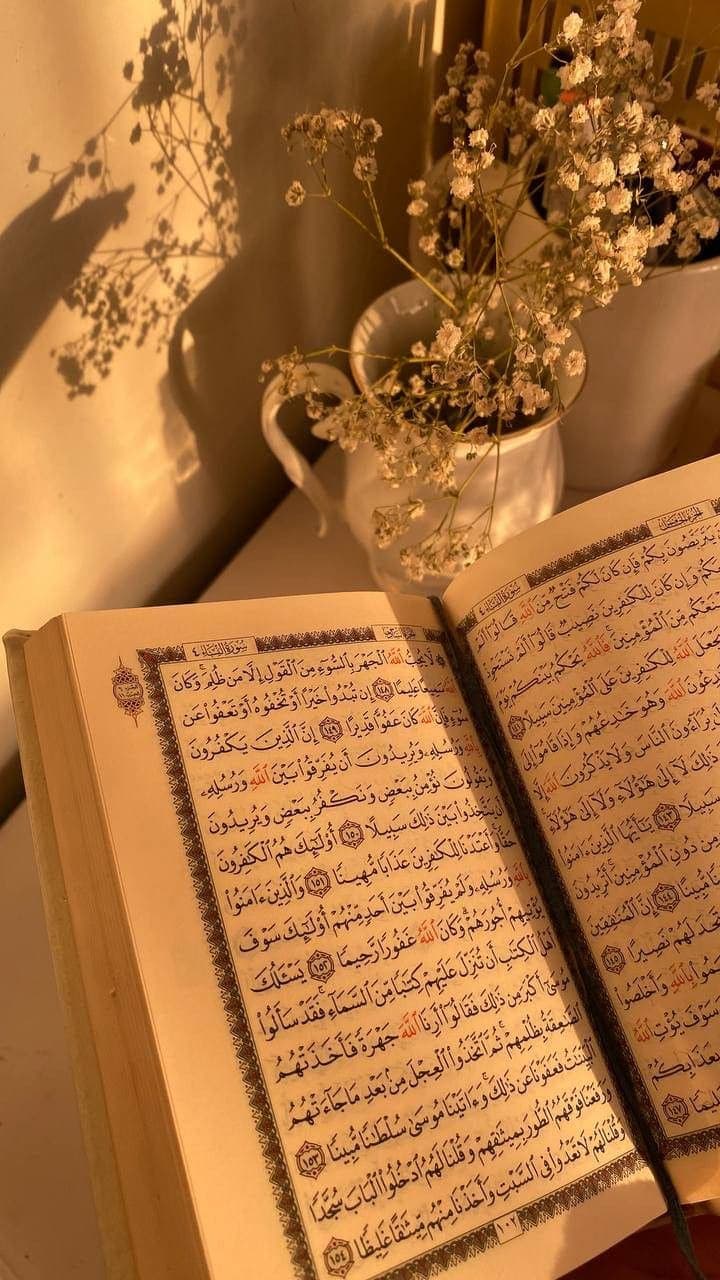 سُورَةُ النِّسَاءِ ٤
يَتَرَبَّصُونَ بِكُمْ فَإِن كَانَ لَكُمْ فَتْحٌ مِّنَ ٱللَّهِ قَالُوٓا۟ أَلَمْ
وَإِن كَانَ لِلْكَٰفِرِينَ نَصِيبٌ قَالُوٓا۟ أَلَمْ نَسْتَحْوِذْ
مِّنَ ٱلْمُؤْمِنِينَ ۚ فَٱللَّهُ يَحْكُمُ بَيْنَكُمْ يَوْمَ
ٱللَّهُ لِلْكَٰفِرِينَ عَلَى ٱلْمُؤْمِنِينَ سَبِيلًا ١٤١
ٱللَّهَ وَهُوَ خَٰدِعُهُمْ وَإِذَا قَامُوٓا۟ إِلَى
يُرَآءُونَ ٱلنَّاسَ وَلَا يَذْكُرُونَ ٱللَّهَ إِلَّا
ذَٰلِكَ لَآ إِلَىٰ هَٰٓؤُلَآءِ وَلَآ إِلَىٰ هَٰٓؤُلَآءِ
سَبِيلًا ١٤٣ يَٰٓأَيُّهَا ٱلَّذِينَ ءَامَنُوا۟
مِن دُونِ ٱلْمُؤْمِنِينَ ۚ أَتُرِيدُونَ
مُّبِينًا ١٤٤ إِنَّ ٱلْمُنَٰفِقِينَ
تَجِدَ لَهُمْ نَصِيرًا ١٤٥
بِٱللَّهِ وَأَخْلَصُوا۟
سَوْفَ يُؤْتِ ٱللَّهُ
بِعَذَابِكُمْ
١٤٧
سُورَةُ النِّسَاءِ ٤
لَّا يُحِبُّ ٱللَّهُ ٱلْجَهْرَ بِٱلسُّوٓءِ مِنَ ٱلْقَوْلِ إِلَّا مَن ظُلِمَ ۚ وَكَانَ
ٱللَّهُ سَمِيعًا عَلِيمًا ١٤٨ إِن تُبْدُوا۟ خَيْرًا أَوْ تُخْفُوهُ أَوْ تَعْفُوا۟ عَن
سُوٓءٍ فَإِنَّ ٱللَّهَ كَانَ عَفُوًّا قَدِيرًا ١٤٩ إِنَّ ٱلَّذِينَ يَكْفُرُونَ
بِٱللَّهِ وَرُسُلِهِۦ وَيُرِيدُونَ أَن يُفَرِّقُوا۟ بَيْنَ ٱللَّهِ وَرُسُلِهِۦ
وَيَقُولُونَ نُؤْمِنُ بِبَعْضٍ وَنَكْفُرُ بِبَعْضٍ وَيُرِيدُونَ
أَن يَتَّخِذُوا۟ بَيْنَ ذَٰلِكَ سَبِيلًا ١٥٠ أُو۟لَٰٓئِكَ هُمُ ٱلْكَٰفِرُونَ
حَقًّا ۚ وَأَعْتَدْنَا لِلْكَٰفِرِينَ عَذَابًا مُّهِينًا ١٥١ وَٱلَّذِينَ ءَامَنُوا۟
بِٱللَّهِ وَرُسُلِهِۦ وَلَمْ يُفَرِّقُوا۟ بَيْنَ أَحَدٍ مِّنْهُمْ أُو۟لَٰٓئِكَ سَوْفَ
يُؤْتِيهِمْ أُجُورَهُمْ ۗ وَكَانَ ٱللَّهُ غَفُورًا رَّحِيمًا ١٥٢ يَسْـَٔلُكَ
أَهْلُ ٱلْكِتَٰبِ أَن تُنَزِّلَ عَلَيْهِمْ كِتَٰبًا مِّنَ ٱلسَّمَآءِ ۚ فَقَدْ سَأَلُوا۟
مُوسَىٰٓ أَكْبَرَ مِن ذَٰلِكَ فَقَالُوٓا۟ أَرِنَا ٱللَّهَ جَهْرَةً فَأَخَذَتْهُمُ
ٱلصَّٰعِقَةُ بِظُلْمِهِمْ ۚ ثُمَّ ٱتَّخَذُوا۟ ٱلْعِجْلَ مِنۢ بَعْدِ مَا جَآءَتْهُمُ
ٱلْبَيِّنَٰتُ فَعَفَوْنَا عَن ذَٰلِكَ ۚ وَءَاتَيْنَا مُوسَىٰ سُلْطَٰنًا مُّبِينًا ١٥٣
وَرَفَعْنَا فَوْقَهُمُ ٱلطُّورَ بِمِيثَٰقِهِمْ وَقُلْنَا لَهُمُ ٱدْخُلُوا۟ ٱلْبَابَ سُجَّدًا
وَقُلْنَا لَهُمْ لَا تَعْدُوا۟ فِى ٱلسَّبْتِ وَأَخَذْنَا مِنْهُم مِّيثَٰقًا غَلِيظًا ١٥٤
١٠٢